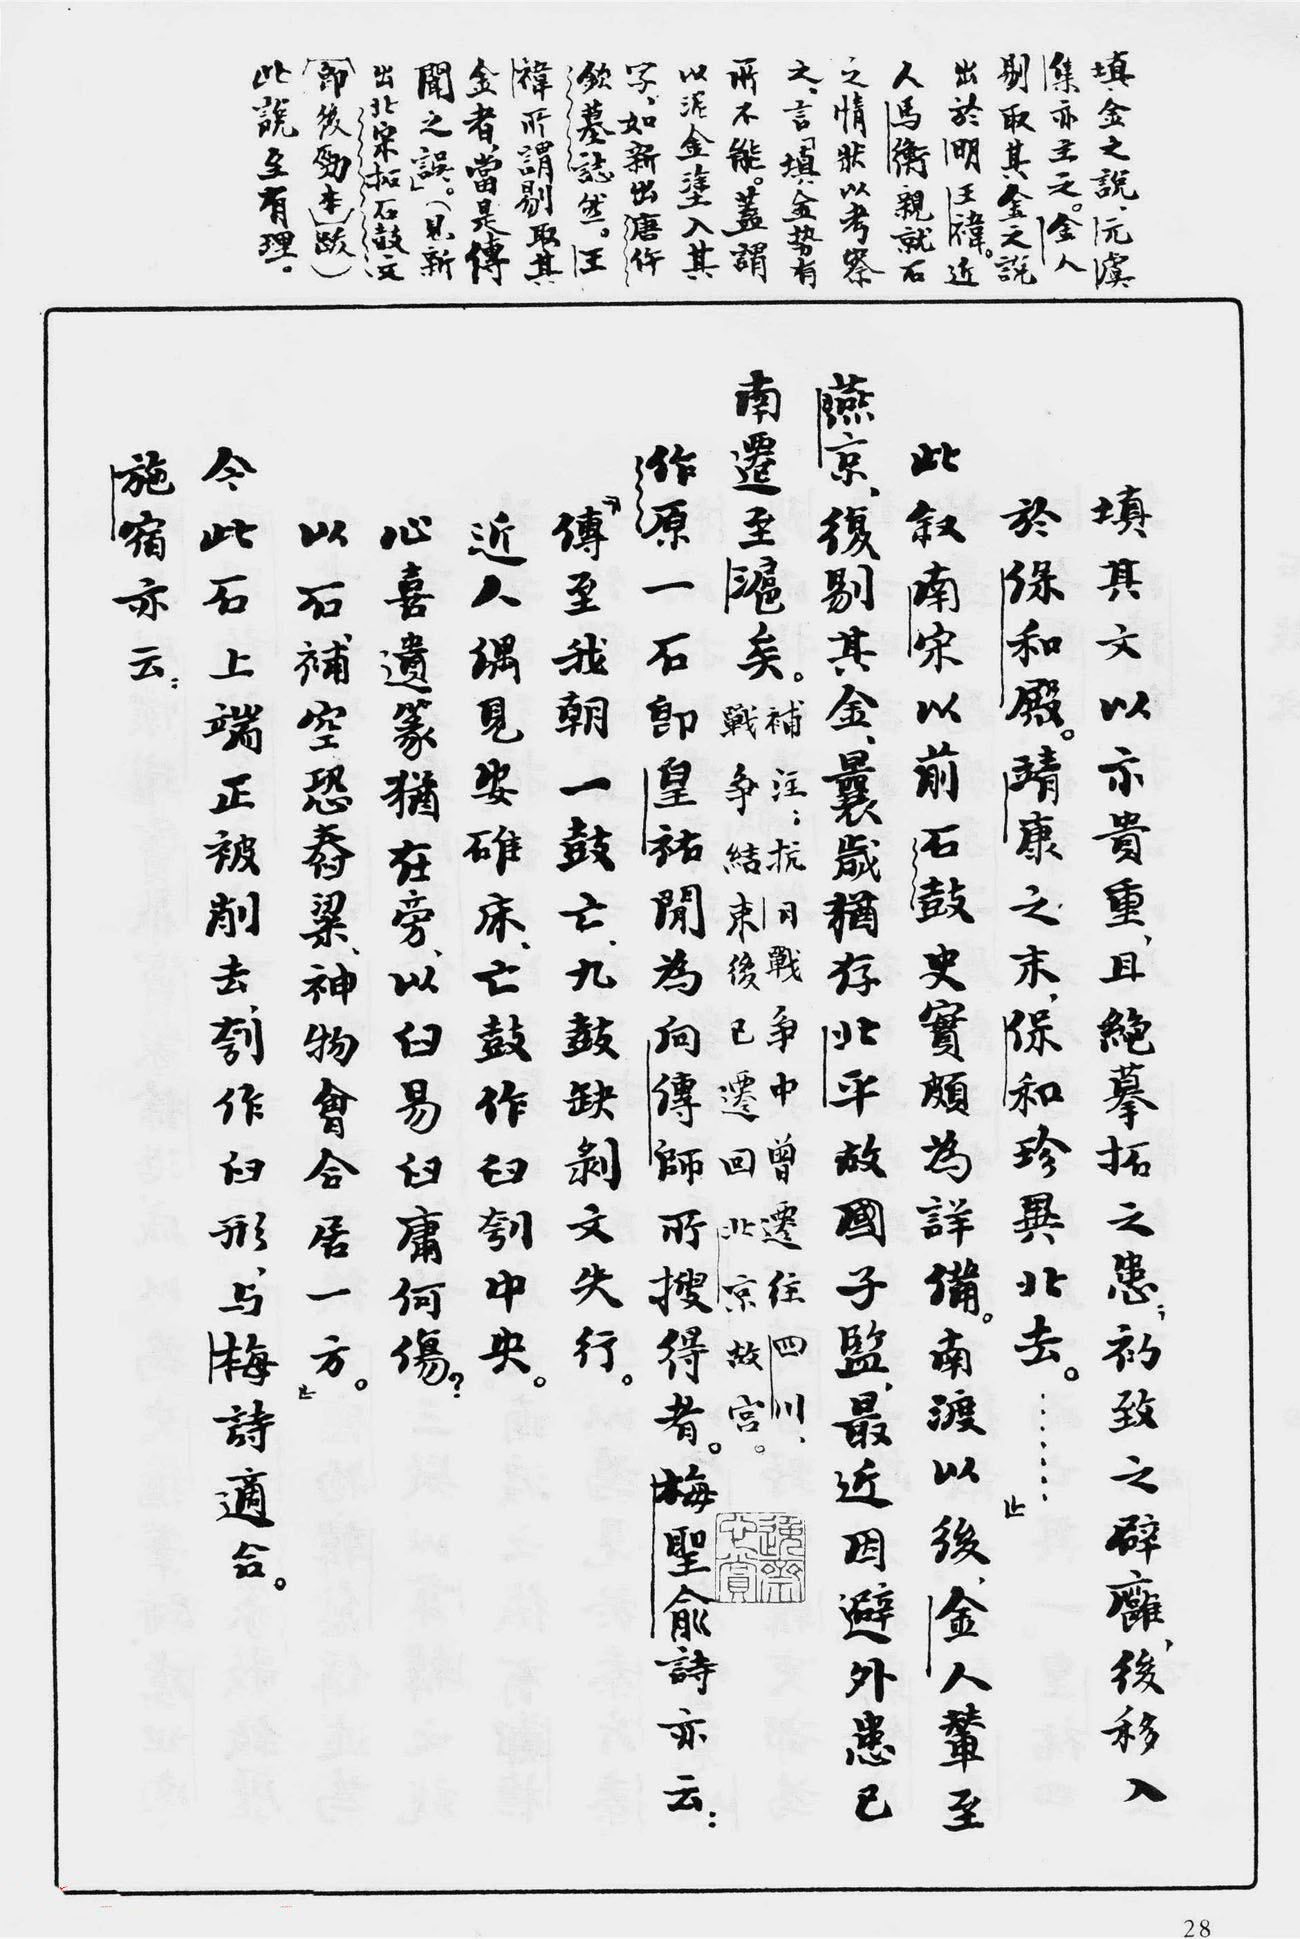 填金之說，元虞
集亦主之。金人
剔取其金之說
出於明王禕。近
人馬衡親就石
之情狀以考察
之，言「填金勢有
所不能。蓋謂
以泥金塗入其
字，如新出唐仵
欽墓誌然。王
禕所謂剔取其
金者，當是傳
聞之誤」。（見新
出北宋拓石鼓文
〔即後勁本〕跋）
此說至有理。
填其文以示貴重，且絕摹拓之患；初致之辟廱，後移入
於保和殿。靖康之末，保和珍異北去。……」
此叙南宋以前石鼓史實頗為詳備。南渡以後，金人輦至
燕京，復剔其金，曩歲猶存北平故國子監，最近因避外患已
南遷至滬矣。
補注：抗日戰争中曾遷往四川，
戰争結束後已遷回北京故宮。
作原一石即皇祐閒為向傳師所搜得者。梅聖俞詩亦云：
「傳至我朝一鼓亡，九鼓缺剝文失行。
近人偶見安碓床，亡鼓作臼刳中央。
心喜遺篆猶在旁，以臼易臼庸何傷？
以石補空恐舂粱，神物會合居一方。」
今此石上端正被削去，刳作臼形，与梅詩適合。
施宿亦云：
28